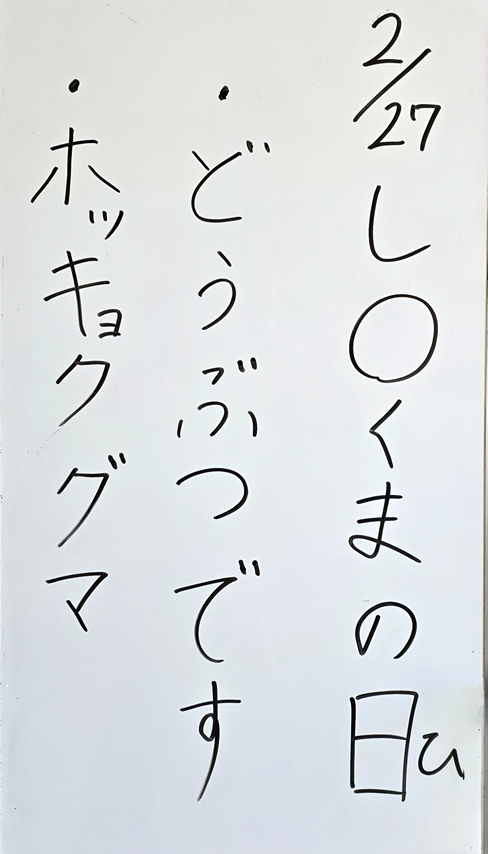 2/27し〇くまの日ひ
・どうぶつです
・ホッキョクグマ